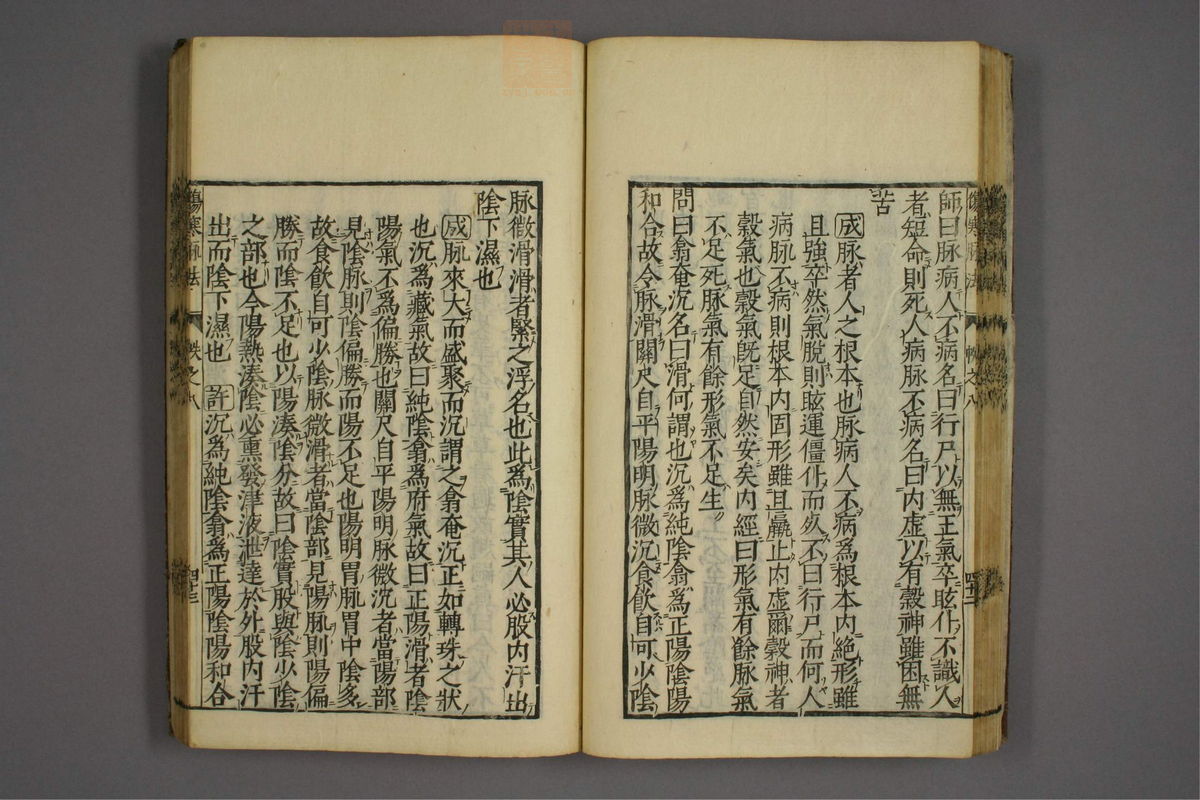 師曰脉病人不病名曰行尸以無王氣卒眩仆不識人
者短命則死人病脉不病名曰内虚以有糓神雖困無
苦
成脉者人之根本也脉病人不病爲根本内絶形雖
且強卒然氣脱則眩運僵仆而死不曰行尸而何人
病脉不病則根本内固形雖且羸止内虚爾糓神者
糓氣也糓氣旣足自然安矣内經曰形氣有餘脉氣
不足死脉氣有餘形氣不足生
問曰翕奄沉名曰滑何謂也沉爲純陰翕爲正陽陰陽
和合故令脉滑關尺自平陽明脉微沉食飲自可少陰
脉微滑滑者緊之浮名也此爲陰實其人必股内汗出
陰下濕也
成脉來大而盛聚而沉謂之翕奄沉正如轉珠之狀
也沉爲藏氣故曰純陰翕爲府氣故曰正陽滑者陰
陽氣不爲偏勝也關尺自平陽明脉微沉者當陽部
見陰脉則陰偏勝而陽不足也陽明胃脉胃中陰多
故食飲自可少陰脉微滑者當陰部見陽脉則陽偏
勝而陰不足也以陽湊陰分故曰陰實股與陰少陰
之部也今陽熱湊陰必熏發津液泄達於外股内汗
出而陰下濕也 許沉爲純陰翕爲正陽陰陽和合